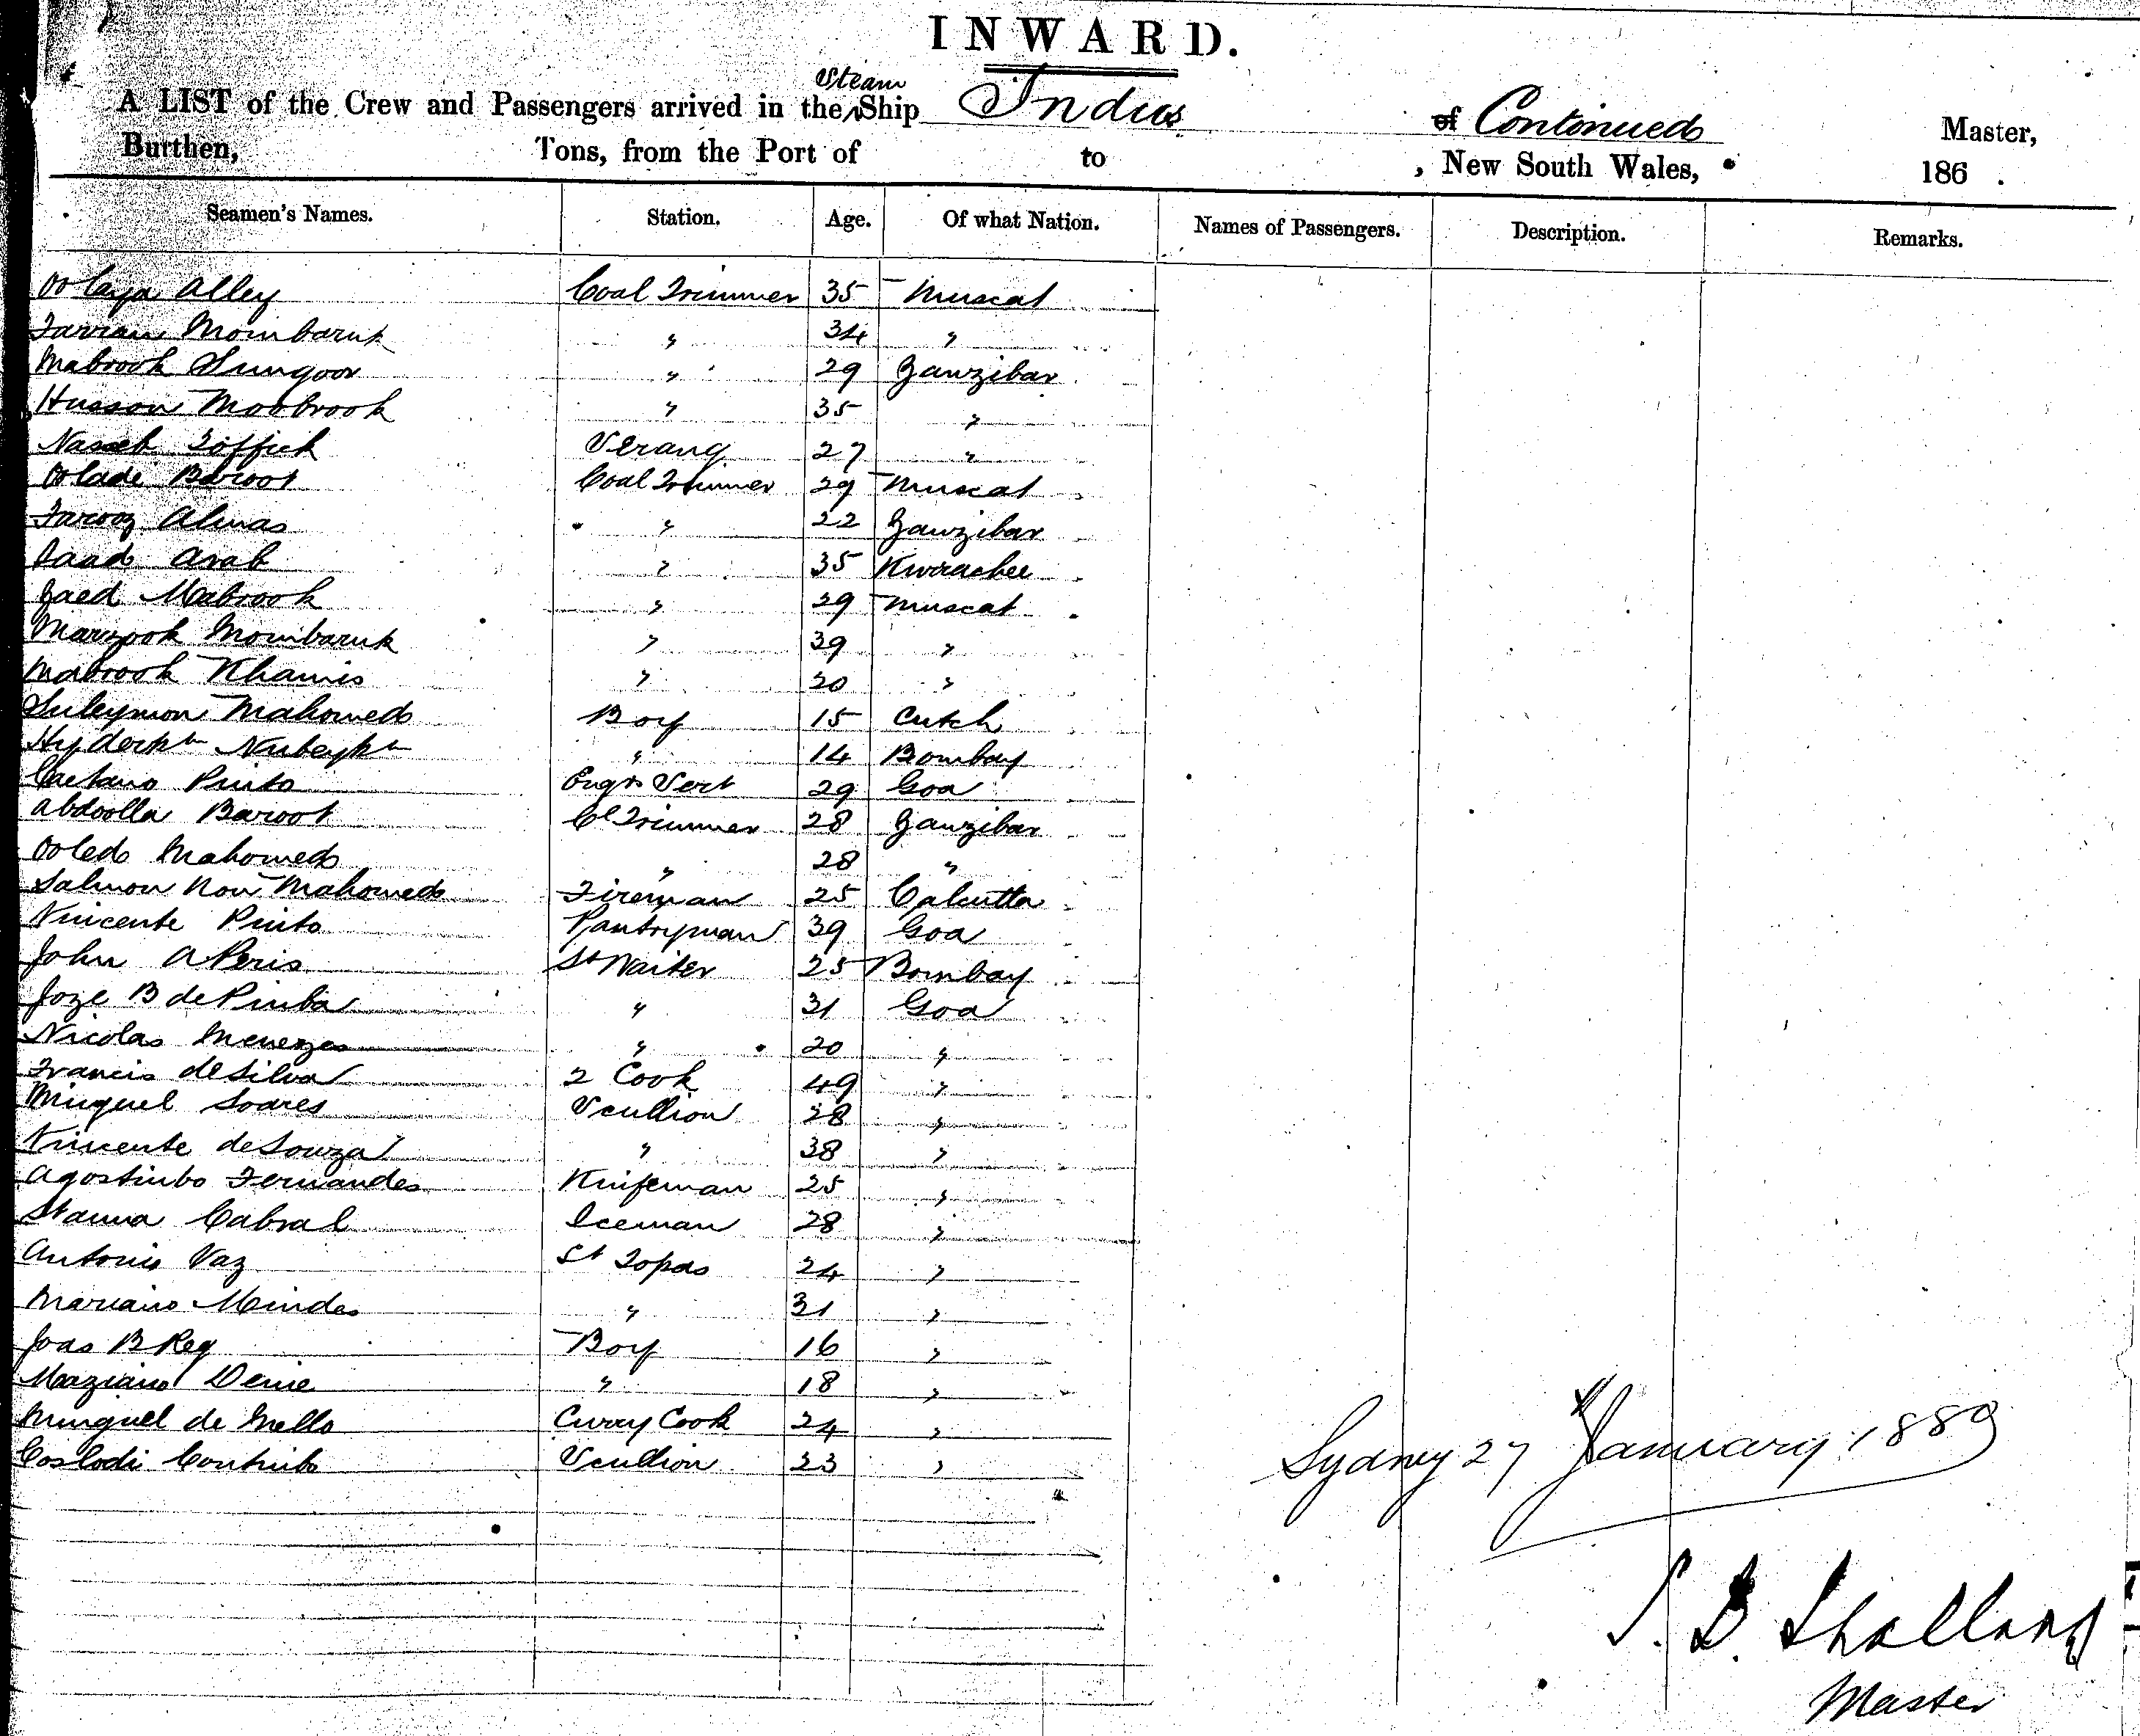 INWARD.
Steam
A LIST of the Crew and Passengers arrived in the Ship Indus of Continued Master,
Burthen, Tons, from the Port of to , New South Wales, 186 .
Seamen's Names. Station. Age. Of what Nation. Names of Passengers. Description. Remarks.
Alley Coal Trimmer 35 Muscat
Mombaruk " 34 "
Mabrook Sungoor " 29 Zanzibar
Husson Moobrook " 35 "
Nasseb Toffick Serang 27 "
Olade Baroot Coal Trimmer 29 Muscat
Farooz Almas " 22 Zanzibar
Saad Arab " 35 Kurrachee
Zaed Mabrook " 29 Muscat
Marzook Mombaruk " 39 "
Mabrook Khamis " "
Suleymon Mahomed Boy 15 Cutch
" 14 Bombay
Caetano Pinto Engrs Servt 29 Goa
Abdoolla Baroot Cl Trimmer 28 Zanzibar
Ooled Mahomed " 28 "
Salmon Nou Mahomed Fireman 25 Calcutta
Vincente Pinto Pantryman 39 Goa
John A Peris St Waiter 25 Bombay
Joze B de " 31 Goa
Nicolas Menezes " 20 "
Francis de Silva 2 Cook 49 "
Miguel Soares Scullion 28 "
Vincente de Souza " 38 "
Agostinho Fernandes Knifeman 25 "
Cabral Iceman 28 "
Antonio Vaz St Topas 24 "
Mariano Mendes " 31 "
Joas B Reg Boy 16 "
Maziano " 18 "
Minguel de Mello Curry Cook 24 "
Scullion 23 "
Sydney 27 January 1889
Master